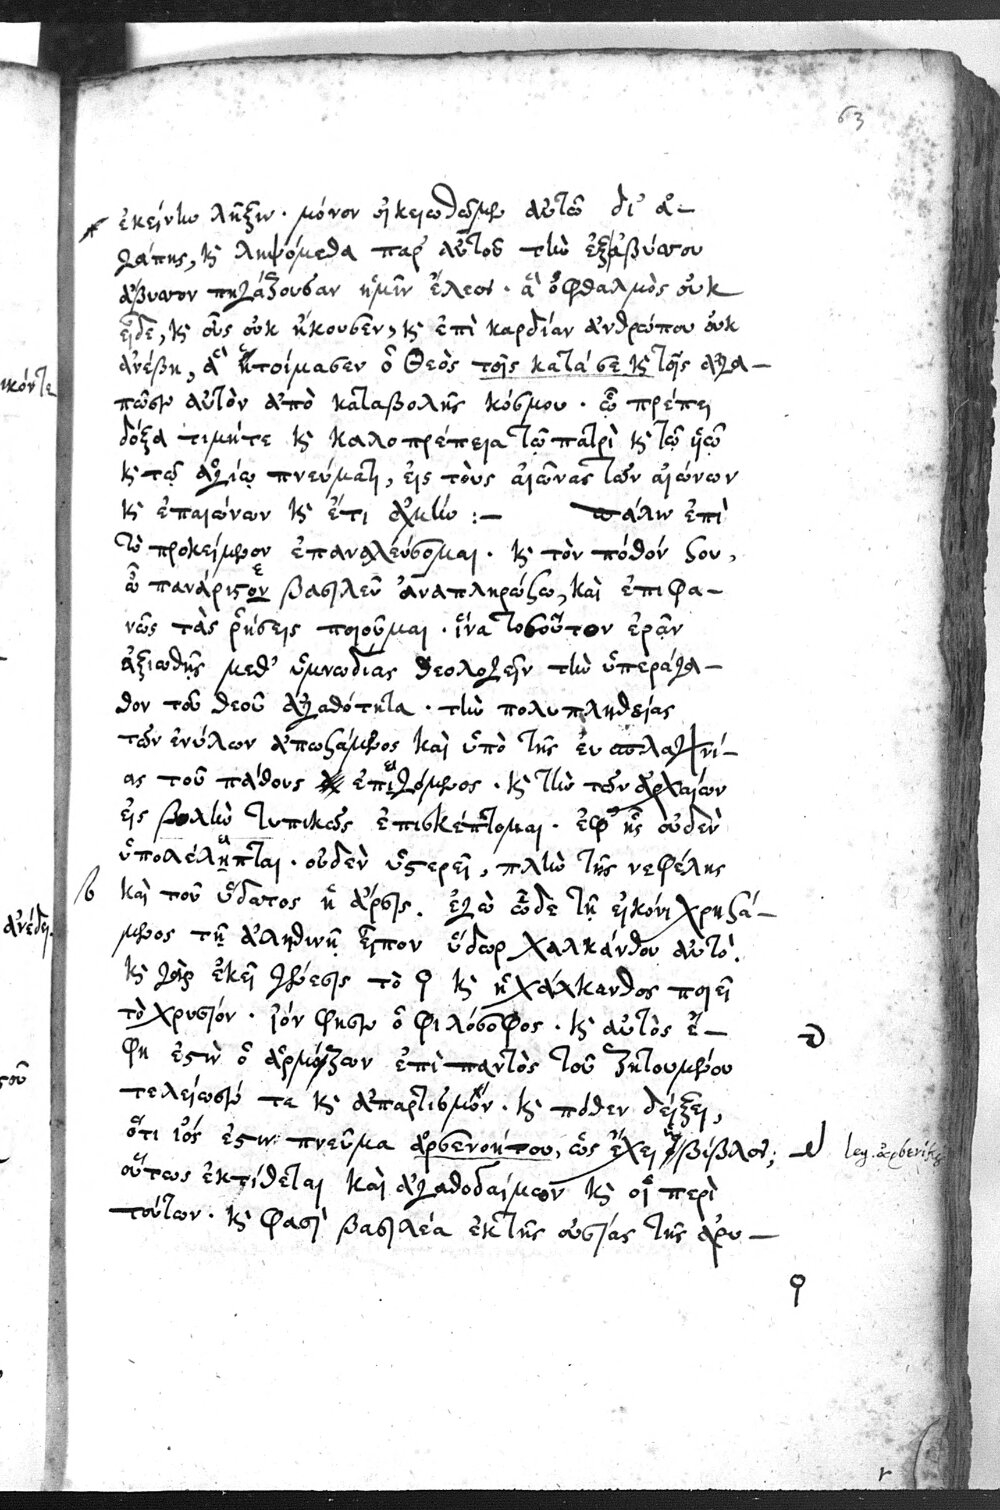 63
ἐκείνην λῆξιν. μόνον οἰκειωθῶμεν αὐτῶ δι' ἀ-
γάπης, κ ληψόμεθα παρ' αὐτοῦ τὴν ἐξ ἀβύσσου
ἄβυσσον πηγάζουσαν ἡμῖν ἔλεος. ἃ ὀφθαλμὸς οὐκ
εἶδε, κ οὖς οὐκ ἤκουσεν, κ ἐπὶ καρδίαν ἀνθρώπου οὐκ
ἀνέβη, ἃ ἡτοίμασεν ὁ Θεὸς τοῖς κατά σε κ τοῖς ἀγα-
πῶσιν αὐτὸν ἀπὸ καταβολῆς κόσμου. ᾧ πρέπει
δόξα τιμήτε κ καλοπρέπεια τῷ πατρὶ κ τῷ υἱῷ
κ τῷ ἁγίῳ πνεύματι, εἰς τοὺς αἰῶνας τῶν αἰώνων
κ ἐπαιώνων κ ἔτι ἀμήν :— πάλιν ἐπὶ
τὸ προκείμενον ἐπαναλεύσομαι. κ τὸν πόθόν σου,
ὦ πανάριστον βασιλεῦ ἀναπληρώσω, καὶ ἐπιφα-
νῶς τὰς ῥήσεις ποιοῦμαι. ἵνα τοσοῦτον ἐρᾶν
ἀξιωθῇς μεθ' ὑμνωδίας θεολογεῖν τὴν ὑπεράγα-
θον τοῦ θεοῦ ἀγαθότητα. τὴν πολυπληθείας
τῶν ἐνύλων ἀπωσάμενος καὶ ὑπὸ τῆς εὐσπλαγχνί-
ας τοῦ πάθους ἐπιγόμενος. κ τὴν τῶν ἀρχαίων
εἰς βολὴν τυπικῶς ἐπισκέπτομαι. ἐφ' ἧς οὐδὲν
ὑπολέληπται. οὐδὲν ὑστερεῖ, πλὴν τῆς νεφέλης
καὶ τοῦ ὕδατος ἡ ἄρσις. ἐγὼ ὧδε τῇ εἰκόνι χρησά-
μενος τῇ ἀληθινῇ εἶπον ὕδωρ χαλκάνθου αὐτό.
κ γὰρ ἐκεῖ τὸ ϙ κ ἡ χάλκανθος ποιεῖ
τὸ χρυσίον. ἰόν φησιν ὁ φιλόσοφος. κ αὐτὸς ἔ-
φη ἐστὶν ὁ ἁρμόζων ἐπὶ παντὸς τοῦ ζητουμένου
τελείωσίν τε κ ἀπαρτισμόν. κ πόθεν δείξει,
ὅτι ἰός ἐστιν πνεῦμα ἀρσενοήτου, ὡς ἔχει ἡ βίβλος;
leg. ἀρσενίκ
οὕτως ἐκτίθεται καὶ ἀγαθοδαίμων κ οἱ περὶ
τούτων. κ φασὶ βασιλέα ἐκ τῆς οὐσίας τῆς ἀρυ-
ϙ